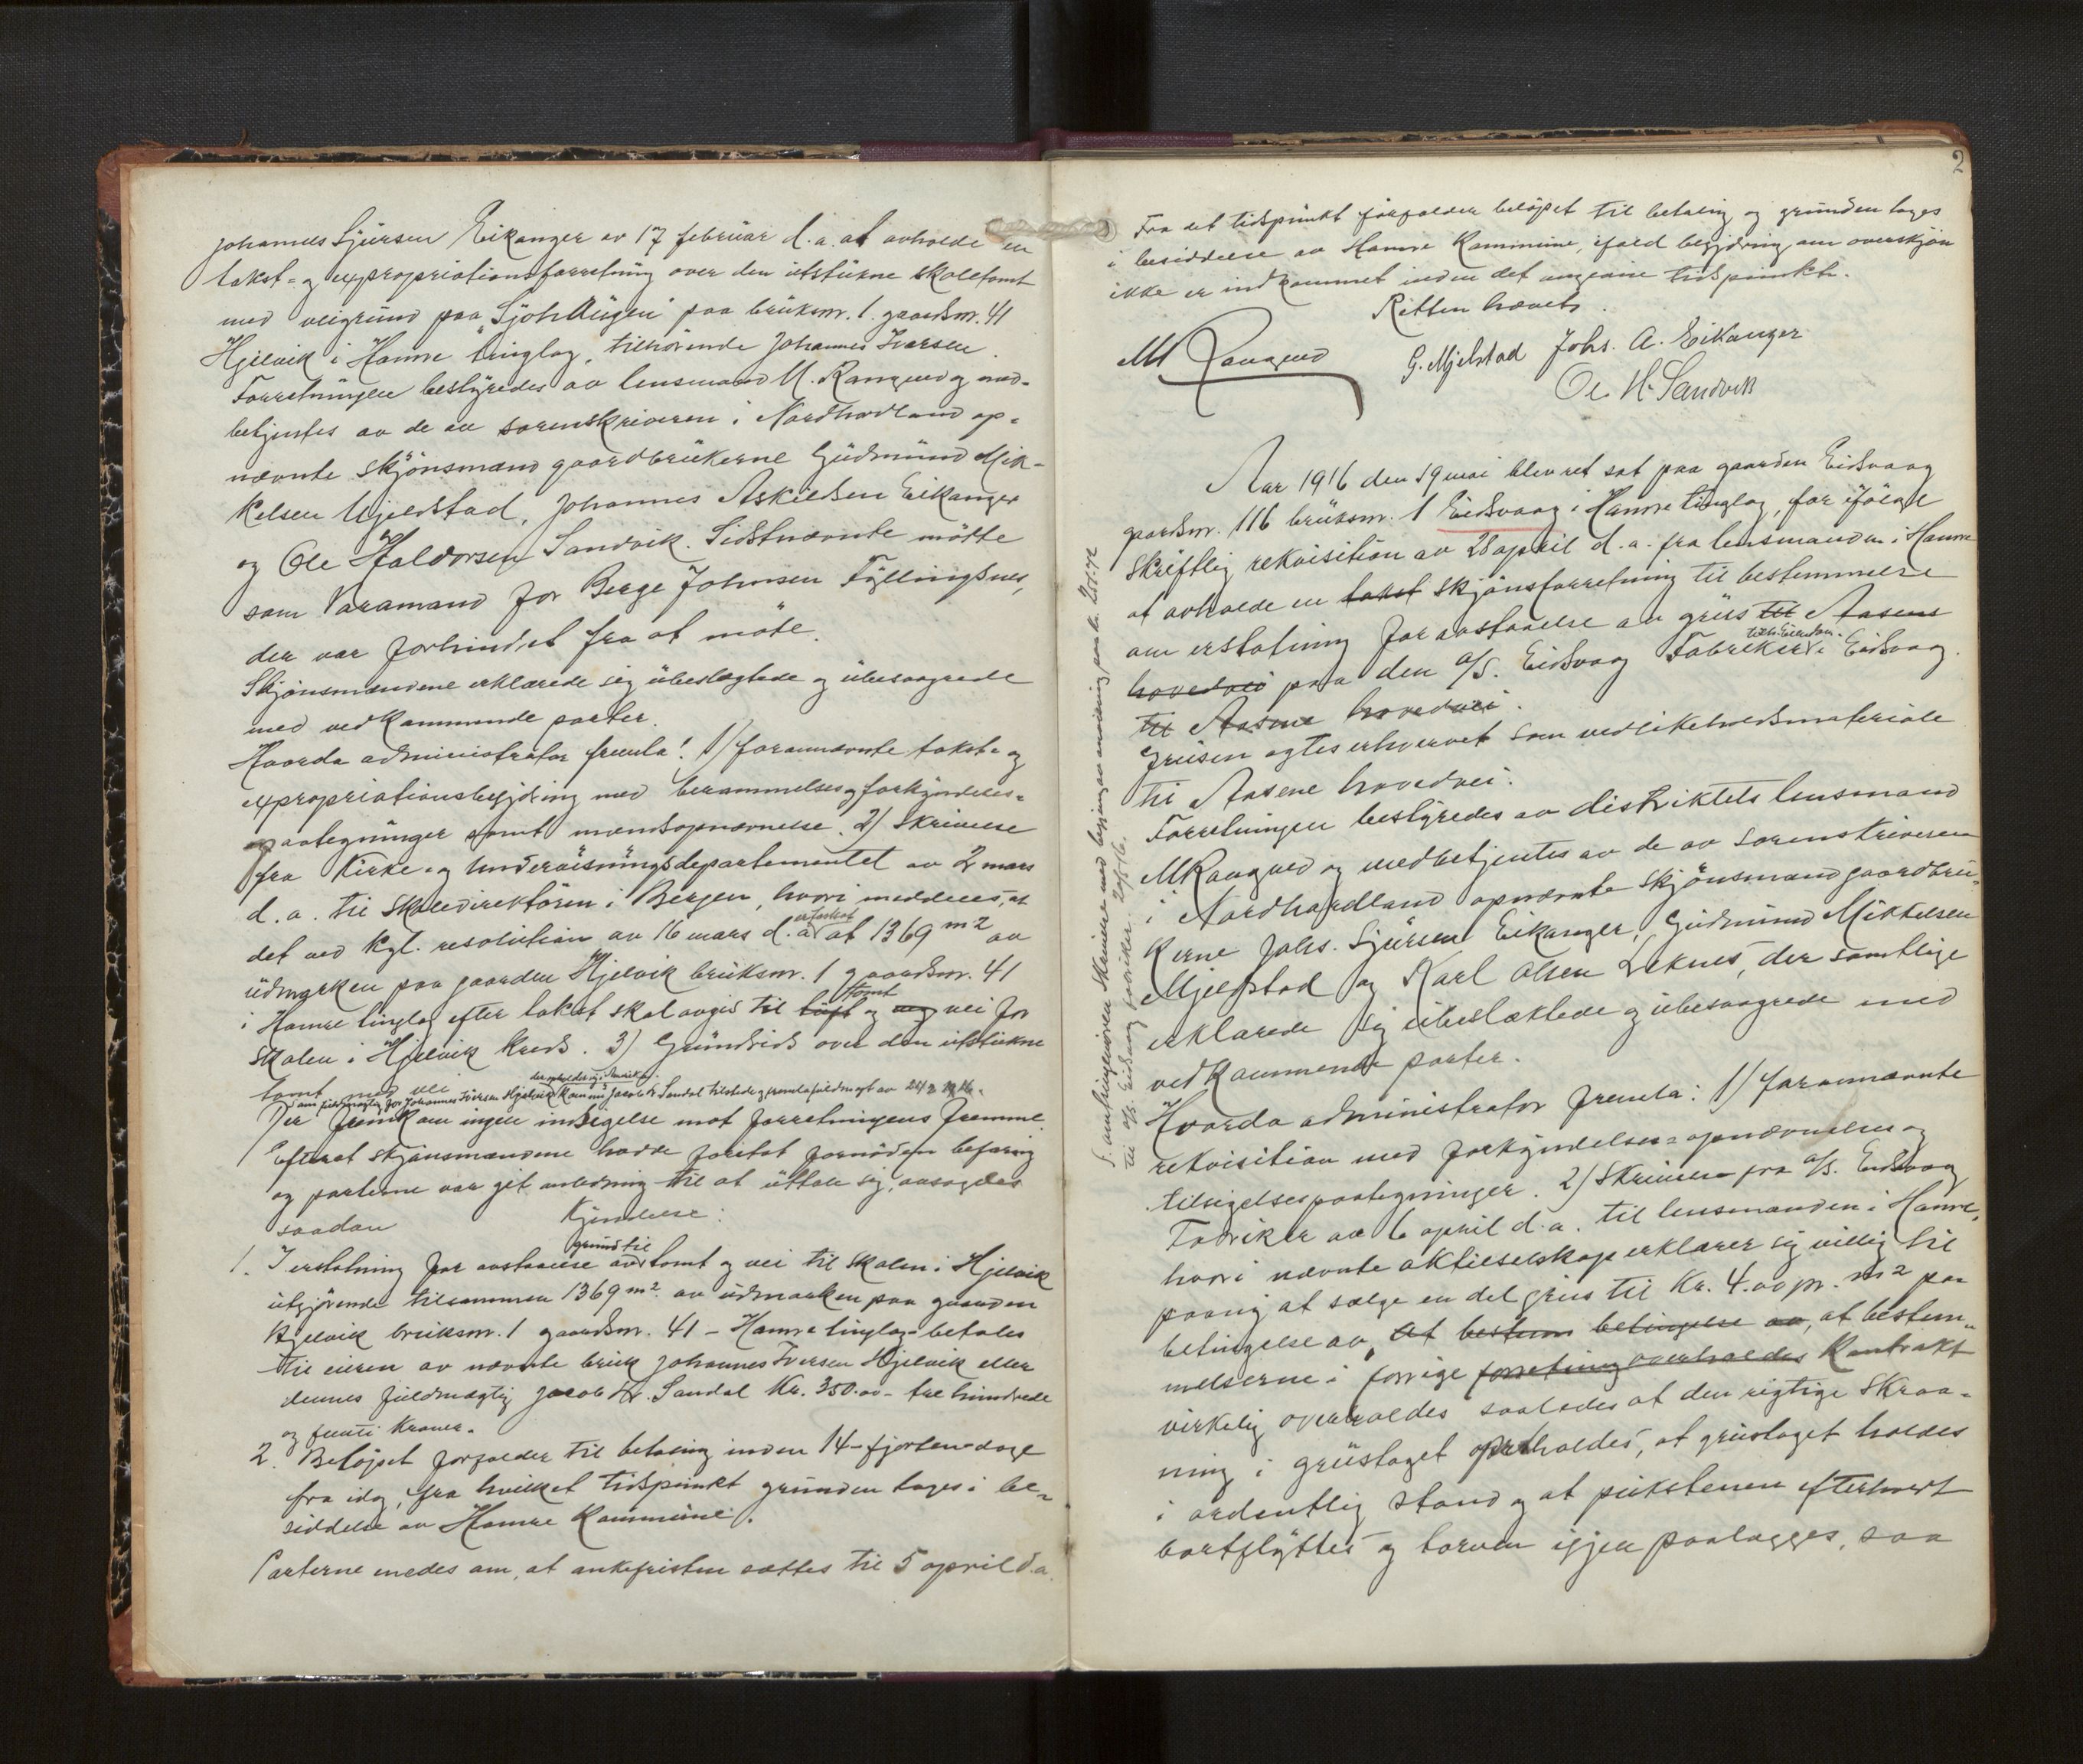 Johannes Sjursen Eikanger av 17 februar d.a. at avholde en
takst- og expropriationsforretning over den utstukne skoletomt
med veigrund paa "Sjöhaugen" paa bruksnr. 1. gaardsnr. 41
Hjelvik i Hamre tinglag, tilhörende Johannes Iversen.
Forretningen bestyredes av lensmand M. Rangued og med-
betjentes av de av sorenskriveren i Nordhordland op-
nævnte skjönsmænd gaardbrukerne Gudmund Mik-
kelsen Mjelstad, Johannes Askildsen Eikanger
og Ole Haldorsen Sandvik. Sidstnævnte mötte
som Varamand for Berge Johnsen Fyllingsnes,
der var forhindret fra at möte.
Skjönsmændene erklærede sig ubeslægtede og ubesvogrede
med vedkommende parter.
Hvorda administrator fremla: 1) forannævnte takst- og
expropriationsbegjæring med berammelses og forkyndelses-
paategninger samt mændsopnævnelse. 2) Skrivelse
fra Kirke- og Undervisningsdepartementet av 2 mars
d.a. til Skoledirektören i Bergen, hvori meddeles, at
det ved kgl. resolution av 16 mars d.a. er fastsat at 1369 m2 av
udmarken paa gaarden Hjelvik bruksnr. 1 gaardsnr. 41
i Hamre tinglag efter takst skal avgis til tomt og vei for
skolen i Hjelvik kreds. 3) Grundrids over den utstukne
tomt med vei
Som fuldmægtig for Johannes Iversen Hjelvik der opholder sig i Amerika. Jacob Sandal tilstede og fremla fuldmagt av
Der fremkom ingen indsigelse mot forretningens fremme.
Efterat skjönsmændene havde foretat fornöden befaring
og parterne var git anledning til at uttale sig, avsagdes
saadan Kjendelse:
1. I erstatning for avstaaelse av grund til tomt og vei til skolen i Hjelvik
utgjörende tilsammen 1369 m2 av udmarken paa gaarden
Hjelvik bruksnr. 1 gaardsnr. 41 - Hamre tinglag - betales
til eieren av nævnte bruk Johannes Iversen Hjelvik eller
dennes fuldmægtig Jacob Sandal Kr. 350.00 - tre hundrede
og femti kroner.
2. Belöpet forfalder til betaling inden 14 - fjorten - dage
fra idag, fra hvilket tidspunkt grunden tages i be-
siddelse av Hamre Kommune.
Parterne enedes om, at ankefristen sættes til 5 april d.a.
2
Fra det tidspunkt forfalder belöpet til betaling og grunden tages
i besiddelse av Hamre Kommune, ifald begjæring om overskjön
ikke er indkommet inden det angivne tidspunkt.
Retten hævet.
M Rangued G. Mjelstad Johs. A. Eikanger
Ole H. Sandvik
Aar 1916 den 19 mai blev ret sat paa gaarden Eidsvaag
gaardsnr. 116 bruksnr. 1 Eidsvaag i Hamre tinglag, for ifölge
skriftlig rekvisition av 28 april d.a. fra lensmanden i Hamre
at avholde en takst skjönsforretning til bestemmelse
om erstatning for avstaaelse av grus til Aasene
hovedvei paa den A/S. Eidsvaag Fabriker tilh. Eiendom i Eidsvaag.
til Aasene hovedvei.
Grusen agtes erhvervet som vedlikeholdsmateriale
til Aasene hovedvei.
Forretningen bestyredes av distriktets lensmand
M Rangued og medbetjentes av de av sorenskriveren
i Nordhordland opnævnte skjönsmænd gaardbru-
kerne Johs. Sjursen Eikanger, Gudmund Mikkelsen
Mjelstad og Karl Olsen Leknes, der samtlige
erklærede sig ubeslæktede og ubesvogrede med
vedkommende parter.
Hvorda administrator fremla: 1) forannævnte
rekvisition med forkyndelses- opnævnelses og
tilsigelsespaategninger. 2) Skrivelse fra A/S. Eidsvaag
Fabriker av 6 april d.a. til lensmanden i Hamre,
hvori nævnte aktieselskap erklærer sig villig til
paany at sælge en del grus til Kr. 4.00 pr. m2 paa
betingelse av, at bestem betingelse av, at bestem-
melserne i forrige forretning overholdes Kontrakt
virkelig overholdes saaledes at den rigtige skraa-
ning i grustaget opretholdes, at grustaget holdes
i ordentlig stand og at pukstenen efterhvert
bortflyttes og torven igjen paalægges, saa
til A/S. Eidsvaag fabriker 20/5-16.